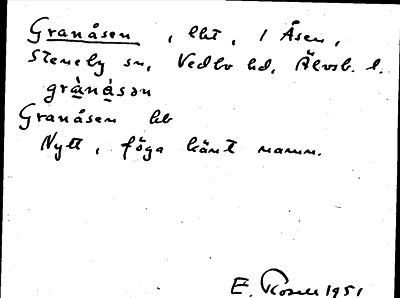 Granåsen, lht, 1 Åsen,
Steneby sn, Vedbo hd, Älvsb. l.
grànásən
Granåsen hb
Nytt, föga känt namn.
E. Rosell 1951